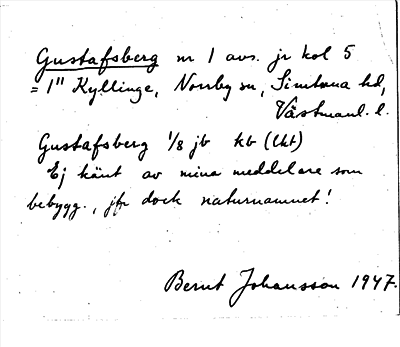 Gustafsberg nr 1 avs. jr kol 5
= 1" Kyllinge, Norrby sn, Simtuna hd,
Västmanl. l.
Gustafsberg 1/8 jb kb (lkt)
Ej känt av mina meddelare som
bebygg., jfr dock naturnamnet!
Bernt Johansson 1947.